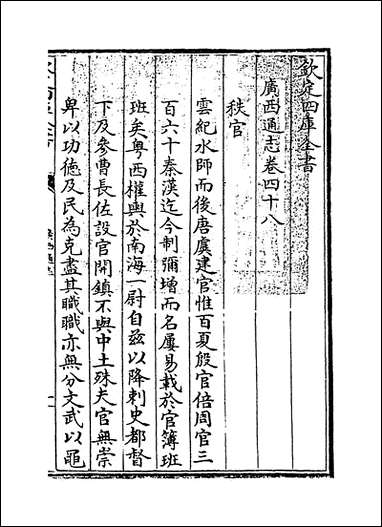 欽定四庫全書
廣西通志卷四十八
秩官
雲紀水師而後唐虞建官惟百夏殷官倍周官三
百六十秦漢迄今制彌增而名屢易載於官簿班
班矣粵西權輿於南海一尉自茲以降刺史都督
下及參曹長佐設官開鎮不與中土殊夫官無崇
卑以功德及民為克盡其職職亦無分文武以黽